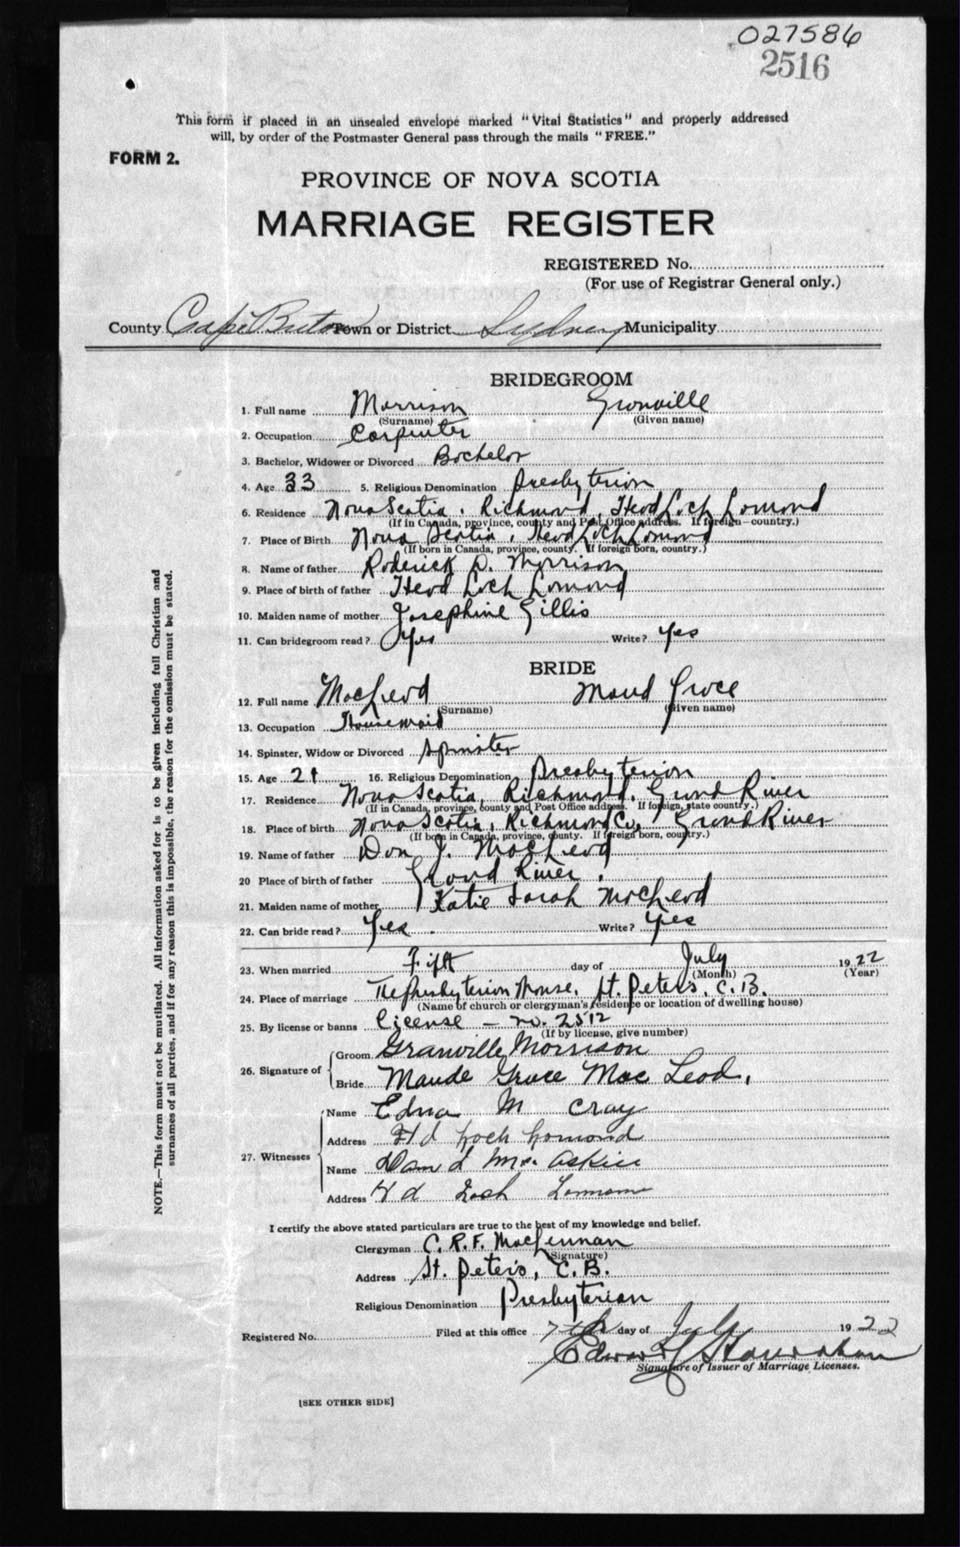 027586
2516
This form if placed in an unsealed envelope marked "Vital Statistics" and properly addressed
will, by order of the Postmaster General pass through the mails "FREE."
FORM 2.
PROVINCE OF NOVA SCOTIA
MARRIAGE REGISTER
REGISTERED No.
(For use of Registrar General only.)
County Cape Breton Town or District Sydney Municipality
BRIDEGROOM
1. Full name Morrison Granville
(Surname) (Given name)
2. Occupation Carpenter
3. Bachelor, Widower or Divorced Bachelor
4. Age 33 5. Religious Denomination Presbyterian
6. Residence Nova Scotia, Richmond, Head Loch Lomond
(If in Canada, province, county and Post Office address. If foreign—country.)
7. Place of Birth Nova Scotia, Head Loch Lomond
(If born in Canada, province, county. If foreign born, country.)
8. Name of father Roderick D. Morrison
9. Place of birth of father Head Loch Lomond
10. Maiden name of mother Josephine Gillis
11. Can bridegroom read? Yes Write? Yes
BRIDE
12. Full name MacLeod Maud Grace
(Surname) (Given name)
13. Occupation Housemaid
14. Spinster, Widow or Divorced Spinster
15. Age 21 16. Religious Denomination Presbyterian
17. Residence Nova Scotia, Richmond, Grand River
(If in Canada, province, county and Post Office address. If foreign, state country.)
18. Place of birth Nova Scotia, Richmond Co, Grand River
(If born in Canada, province, county. If foreign born, country.)
19. Name of father Dan J. MacLeod
20 Place of birth of father Grand River.
21. Maiden name of mother Katie Sarah McLeod
22. Can bride read? Yes. Write? Yes
23. When married Fift day of July 1922
(Month) (Year)
24. Place of marriage The Presbyterian Manse, St. Peters, C.B.
(Name of church or clergyman's residence or location of dwelling house)
25. By license or banns License - no. 2512
(If by license, give number)
26. Signature of Groom Granville Morrison
Bride Maude Grace Mac Leod,
27. Witnesses Name Edna M Cray
Address Hd Loch Lomond
Name Dan L
Address Hd Loch
I certify the above stated particulars are true to the best of my knowledge and belief.
Clergyman C. R. F. MacLennan
(Signature)
Address St. Peter's, C.B.
Religious Denomination Presbyterian
Registered No. Filed at this office 7th day of July 1922
Edward
Signature of Issuer of Marriage Licenses.
[SEE OTHER SIDE]
NOTE.—This form must not be mutilated. All information asked for is to be given including full Christian and
surnames of all parties, and if for any reason this is impossible, the reason for the omission must be stated.